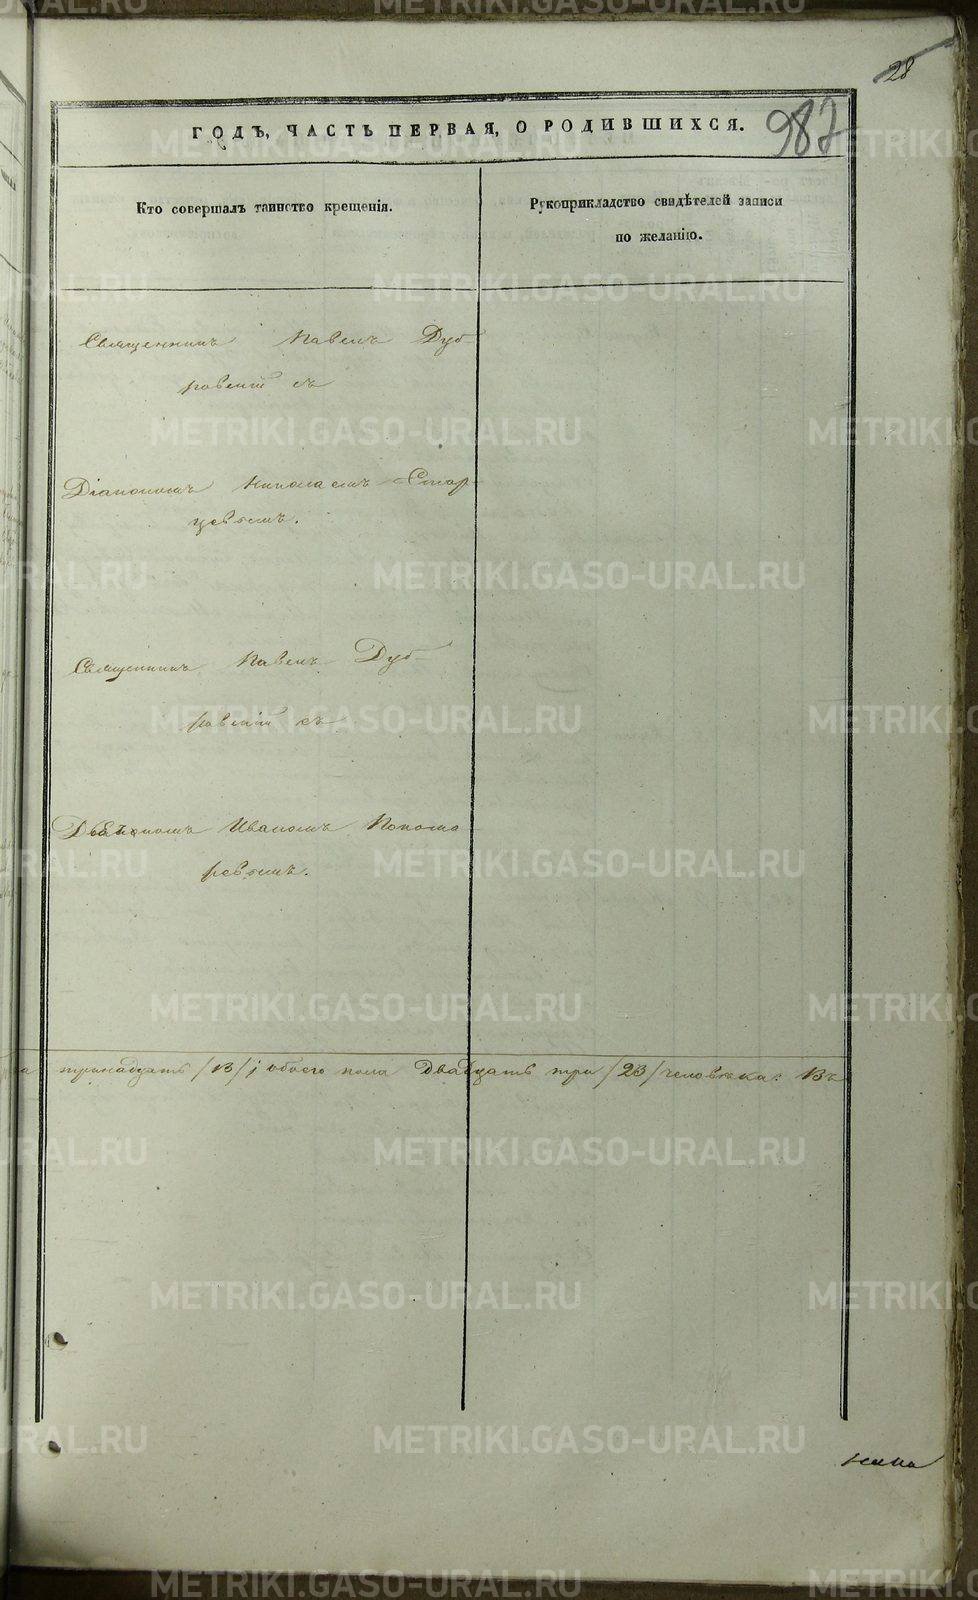 28
987
ГОДЪ, ЧАСТЬ ПЕРВАЯ, О РОДИВШИХСЯ.
Кто совершалъ таинство крещенія.
Рукоприкладство свидѣтелей записи
по желанію.
Священникъ Павелъ Дуб-
ровскій съ
Діакономъ Николаемъ Стар-
цевымъ.
Священникъ Павелъ Дуб-
ровскій съ
Діакономъ Иваномъ Понома-
ревымъ.
тринадцать /13/; обоего пола Двадцать три /23/ человѣка: Въ
METRIKI.GASO-URAL.RU